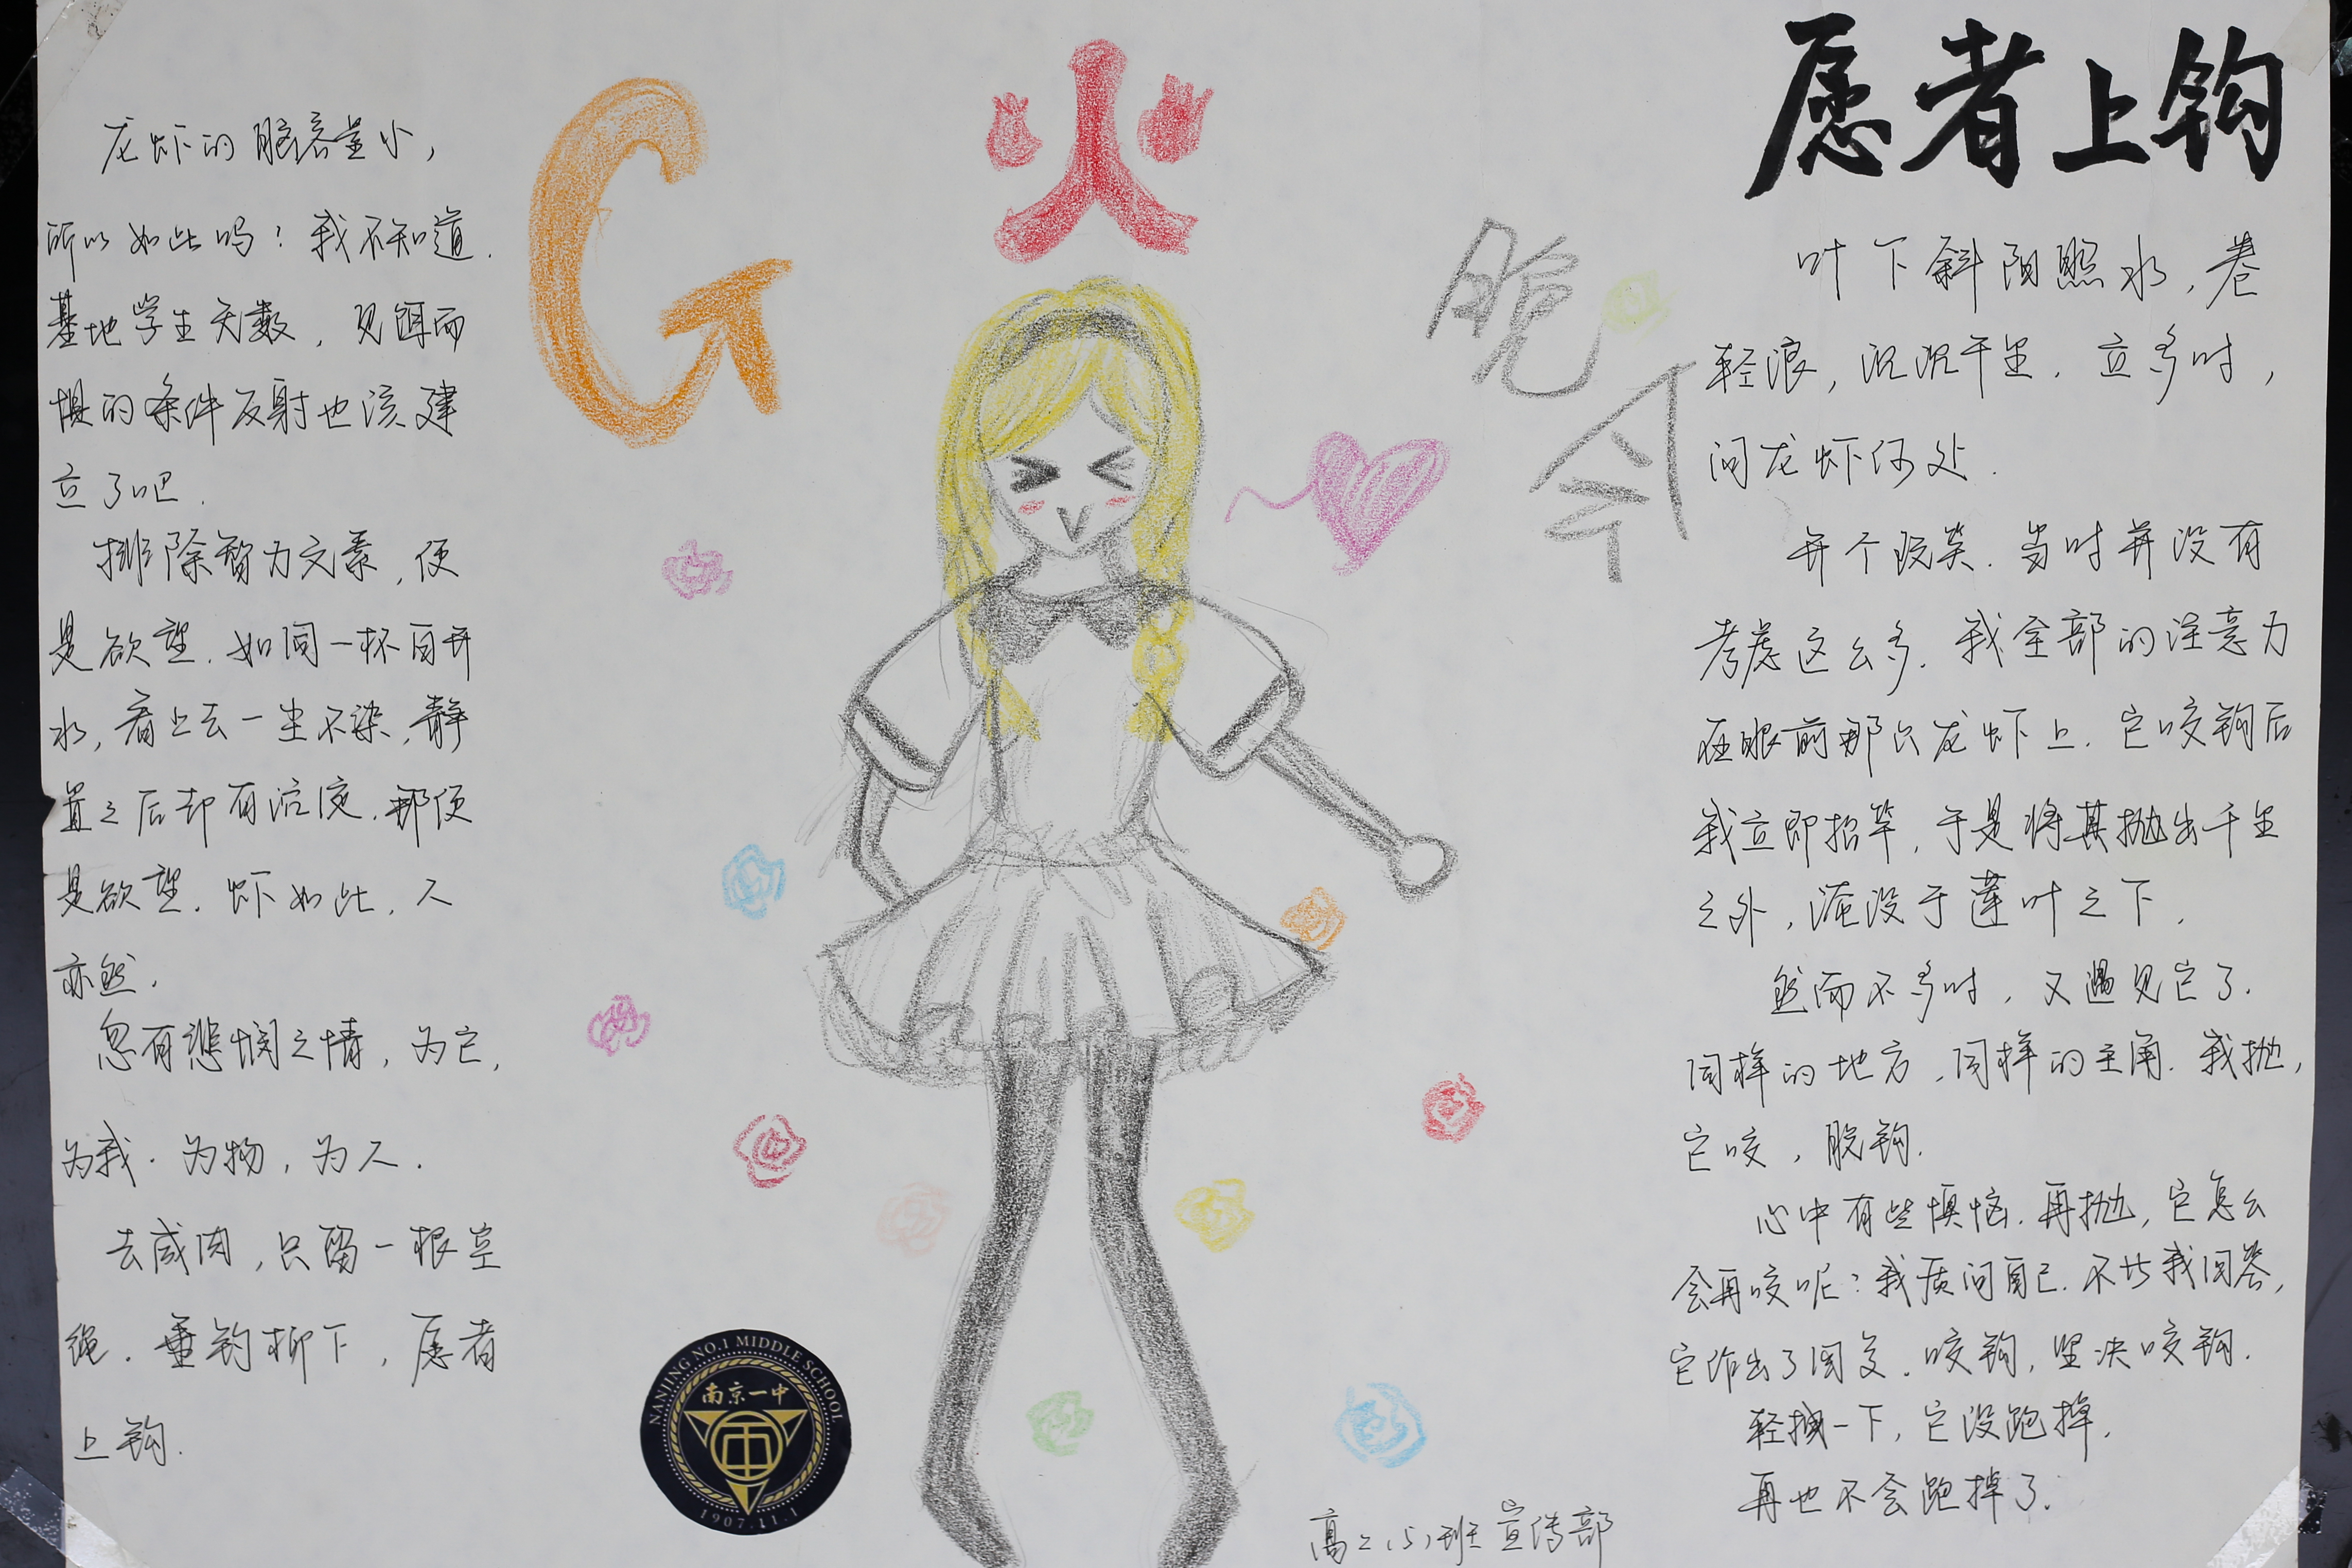 愿者上钩
叶下斜阳照水，卷
轻浪，沉沉千里．立多时，
问龙虾何处．
开个玩笑．当时并没有
考虑这么多．我全部的注意力
在眼前那只龙虾上．它咬钩后
我立即抬竿，于是将其抛出千里
之外，淹没于莲叶之下．
然而不多时，又遇见它了．
同样的地方，同样的主角．我抛，
它咬，脱钩．
心中有些惧恼．再抛，它怎么
会再咬呢？我质问自己．不比我回答，
它作出了回复．咬钩，坚决咬钩．
轻拽一下，它没跑掉．
再也不会跑掉了．
龙虾的脑容量小，
所以如此吗？我不知道．
基地学生无数，见饵而
惧的条件反射也该建
立了吧．
排除智力元素，便
是欲望．如同一杯白开
水，看上去一尘不染，静
置之后却有沉淀．那便
是欲望．虾如此，人
亦然．
忽有悲悯之情，为它，
为我．为物，为人．
去咸肉，只留一根空
绳．垂钓柳下，愿者
上钩．
G
火
晚
会
NANJING NO.1 MIDDLE SCHOOL
南京一中
1907.11.1
高二（5）班 宣传部